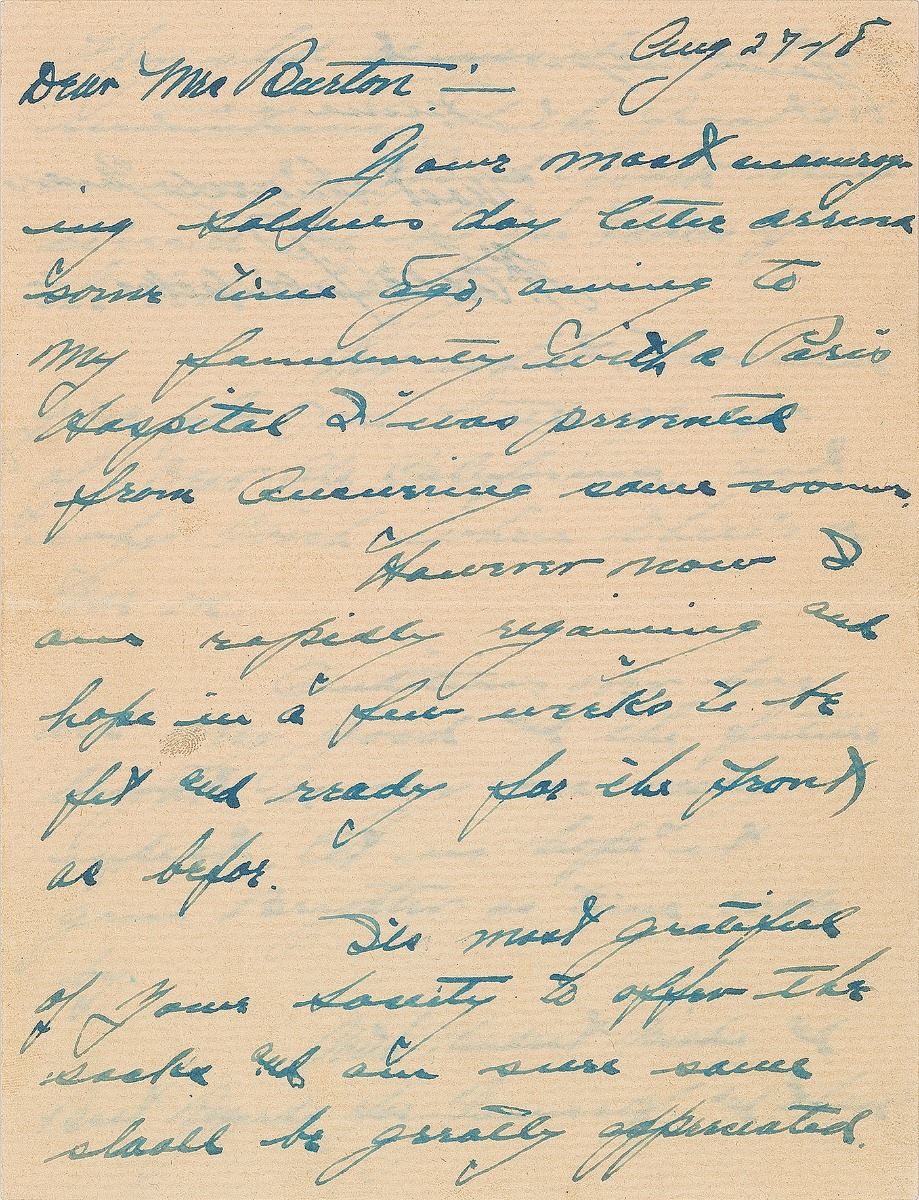 Aug 27-18
Dear Mrs Burton :—
Your most encourag-
ing Soldiers day letter arrived
some time ago, owing to
my familiarity with a Paris
Hospital I was prevented
from answering same sooner.
However now I
am rapidly regaining and
hope in a few weeks to be
fit and ready for the front
as befor.
Its most gratiful
of your Sosity to offer the
socks and am sure same
shall be greatly appreciated.